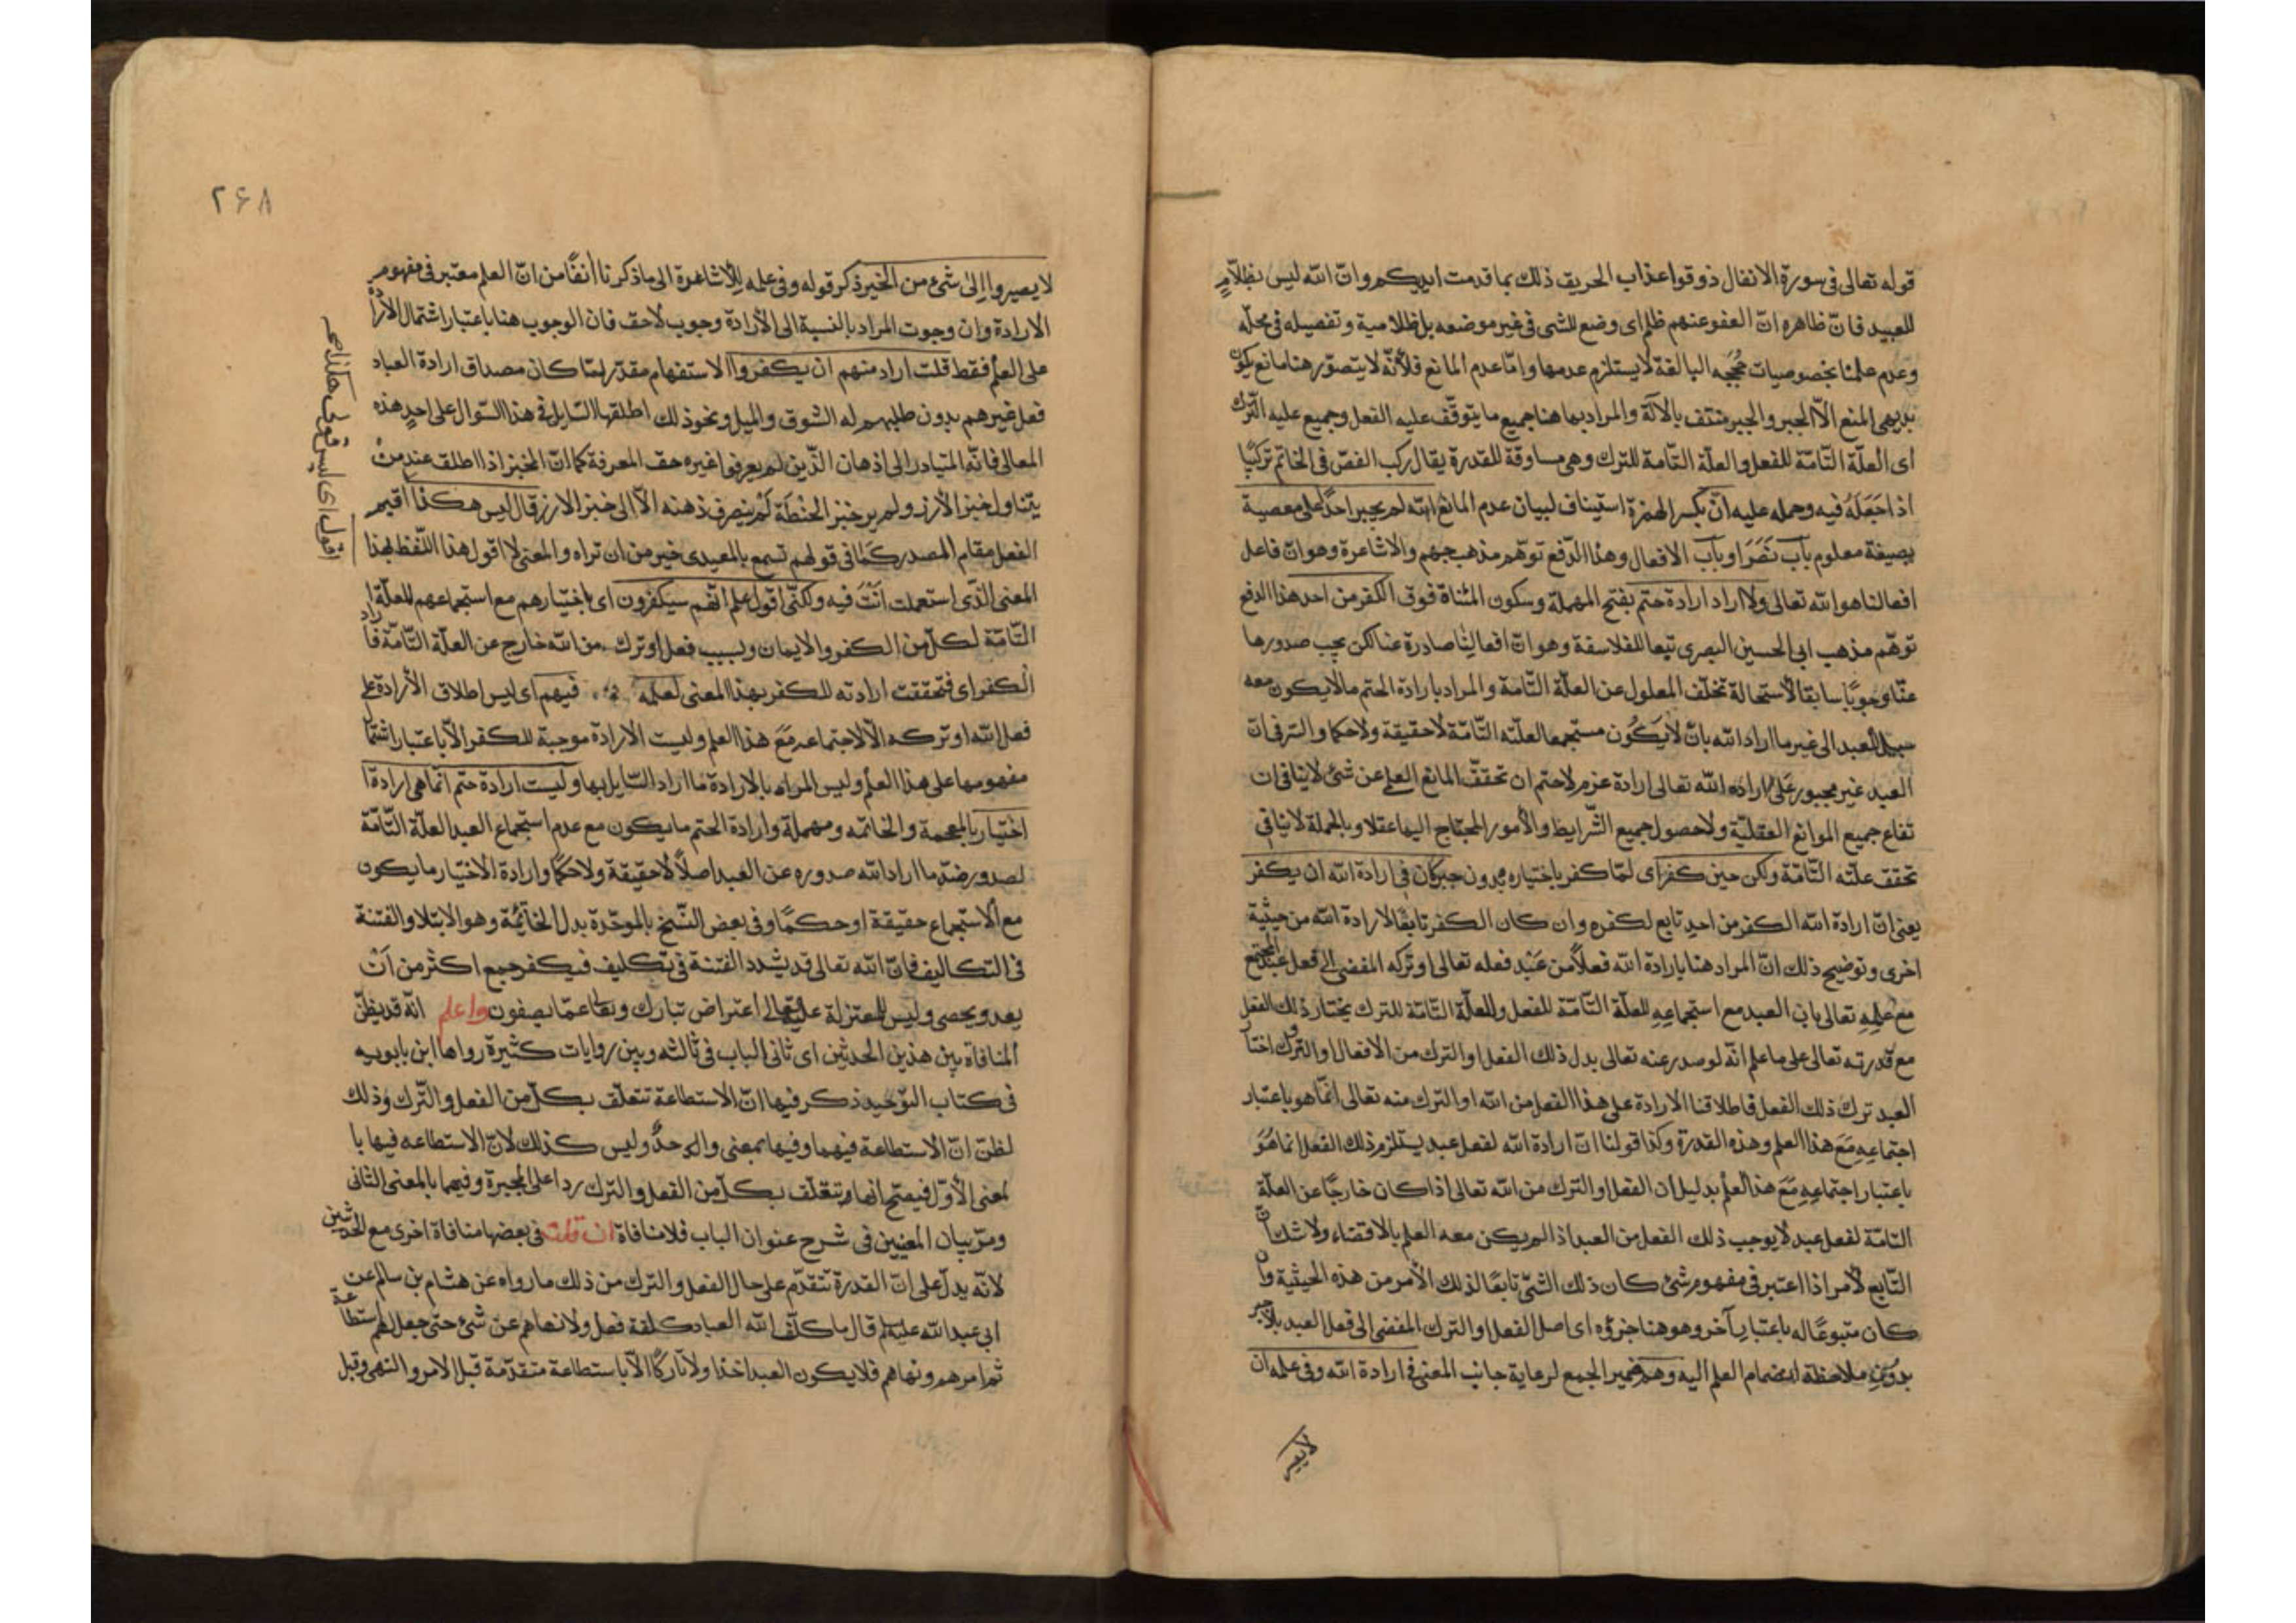 قوله تعالى فى سورة الانفال ذوقوا عذاب الحريق ذلك بما قدمت ايديكم وانّ الله ليس بظلّامٍ
للعبيد فانّ ظاهره انّ العفو عنهم ظلم اى وضع للشى فى غير موضعه بل ظلامية وتفصيله فى محلّه
وعدم علمنا بخصوصيات حُجَجِه البالغة لا يستلزم عدمها وامّا عدم المانع فلأنّه لا يتصوّر هنا مانع يكون
بديهى المنع الّا الجبر والجبر منتف بالآلة والمراد بما هنا جميع ما يتوقّف عليه الفعل وجميع عليه التّرك
اى العلّة التّامّة للفعل والعلّة التّامة للترك وهى مساوقة للقدرة يقال ركب الفصّ فى الخاتم تركيبًا
اذا جَعَلَهُ فيه وحمله عليه انّ بكسر الهمزة استيناف لبيان عدم المانع الله لم يجبر احدًا على معصية
بصيغة معلوم باب نَصَرَ او باب الافعال وهذا الدّفع توهّم مذهب جهم والاشاعرة وهو انّ فاعل
افعالنا هو الله تعالى ولا اراد ارادة حتم بفتح المهملة وسكون المثناة فوق الكفر من احد هذا الدفع
توهّم مذهب ابى الحسين البصرى تبعا للفلاسفة وهو انّ افعالنا صادرة عنا لكن يجب صدورها
عنّا وجوبًا سابقا لاستحالة تخلّف المعلول عن العلّة التّامة والمراد بارادة الحتم ما لا يكون معه
سبيل للعبد الى غير ما اراد الله بانّ لا يَكُون مستجمعا لعلّته التّامّة لا حقيقة ولا حكما والسّر فى انّ
العبد غير مجبور عَلى ما اراده الله تعالى ارادة عزم لا حتم ان تحقّق المانع العلم عن شئ لا ينافى ان
تفاع جميع الموانع العقليّة ولا حصول جميع الشّرايط والأمور المحتاج اليها عقلا وبالجملة لا ينافى
تحقق علّته التّامّة ولكن حين كفر اى لمّا كفر باختياره بدون جبر كان فى ارادة الله ان يكفر
يعنى انّ ارادة الله الكفر من احد تابع لكفره وان كان الكفر تابعًا لارادة الله من حيثية
اخرى وتوضيح ذلك انّ المراد هنا بارادة الله فعلًا من عَبْد فعله تعالى او تركه المفضى الى فعل عبد المجتمع
مع عِلمِهِ تعالى بان العبد مع استجماعِهِ للعلّة التّامّة للفعل وللعلّة التّامّة للترك يختار ذلك الفعل
مع قدرته تعالى على ما علم انّه لو صدر عنه تعالى بدل ذلك الفعل او الترك من الافعال او التّروك اختا
العبد ترك ذلك الفعل فاطلاقنا الارادة على هذا الفعل من الله او الترك منه تعالى انّما هو باعتبار
اجتماعِهِ مَعَ هذا العلم وهذه القدرة وكذا قولنا انّ ارادة الله لفعل عبد يستلزم ذلك الفعل انما هُوَ
باعتبار اجتماعِهِ مَعَ هذا العلم بدليل ان الفعل او الترك من الله تعالى اذا كان خارجًا عن العلّة
التامّة لفعل عبد لا يوجب ذلك الفعل من العبد اذا لم يكن معه العلم بالاقتضاء ولا شكّ انّ
التّابع لأمر اذا اعتبر فى مفهوم شئ كان ذلك الشّئ تابعًا لذلك الأمر من هذه الحيثية وان
كان متبوعًا له باعتبارٍ آخر وهو هنا جزؤه اى اصل الفعل او الترك المفضى الى فعل العبد بلا جبر
بدونِ ملاحظة انضمام العلم اليه وهم ضمير الجمع لرعاية جانب المعنى فى ارادة الله وفى علمه ان
لا يصير
۲۶۸
لا يصيروا إلى شئ من الخير ذكر قوله وفى علمه للاشاعرة الى ما ذكرنا انفًا من انّ العلم معتبر فى مفهوم
الارادة وان وجوب المراد بالنسبة الى الأرادة وجوب لاحق فان الوجوب هنا باعتبار اشتمال الأرادة
على العلم فقط قلت اراد منهم ان يكفروا الاستفهام مقدّر لمّا كان مصداق ارادة العباد
فعل غيرهم بدون طلبهم له الشوق والميل ونحو ذلك اطلقها السّايل فى هذا السّؤال على احد هذه
المعانى فانّه المتبادر الى اذهان الذّين لم يعرفوا غيره حق المعرفة كما انّ الخبز اذا اطلق عند منْ
يتناول خبز الأرز ولم ير خبز الحنْطَة لَمْ ينصرف ذهنه الّا الى خبز الارز قال ليس هكذا اقيم
الفعل مقام المصدر كَمَا فى قولهم تسمع بالمعيدى خير من ان تراه والمعنى لا اقول هذا اللّفظ بهذا
المعنى الذّى استعملت انْتَ فيه ولكنّى اقول علم انّهم سيكفرون اى باختيارهم مع استجماعهم للعلّة
التّامّة لكلّ من الكفر والايمان وبسبب فعل او ترك من الله خارج عن العلّة التّامّة فاراد
الكفر اى فتحققت ارادته للكفر بهذا المعنى لعلمه فيهم اى ليس اطلاق الأرادة على
فعل الله او تركه الّا لاجتماعه مَعَ هذا العلم وليست الارادة موجبة للكفر الّا باعتبار اشتما
مفهومها على هذا العلم وليس المراد بالارادة ما اراد السّايل بها وليست ارادة حتم انّما هى ارادة ا
اختيار بالمعجمة والخاتمه ومهملة وارادة الحتم ما يكون مع عدم استجماع العبد العلّة التّامّة
لصدور ضدّ ما اراد الله صدوره عن العبد اصلًا لا حقيقة ولا حكمًا وارادة الاختيار ما يكون
مع الاستجماع حقيقة او حكمًا وفى بعض النّسخ بالموحّدة بدل الخاتمة وهو الابتلا والفتنة
فى التكاليف فانّ الله تعالى قد يشدد الفتنة فى تكليف فيكفر جمع اكثر من انْ
يعد ويحصى وليس للمعتزلة عليه تعالى اعتراض تبارك وتعا عمّا يصفون واعلم انّه قد يظنّ
المنافاة بين هذين الحديثين اى ثانى الباب فى ثالثه وبين روايات كثيرة رواها ابن بابويه
فى كتاب التوّحيد ذكر فيها انّ الاستطاعة تتعلّق بكلّ من الفعل والتّرك وذلك
لظنّ انّ الاستطاعة فيهما وفيها بمعنى واحد وليس كذلك لانّ الاستطاعه فيها با
لمعنى الأوّل فيصح انها تتعلّق بكلّ من الفعل والترك رد اعلى المجبرة وفيهما بالمعنى الثانى
ومرّ بيان المعنيين فى شرح عنوان الباب فلا منافاة ان قلت فى بعضها منافاة اخرى مع الحديثين
لانّه يدلّ على انّ القدرة تتقدّم على حال الفعل والترك من ذلك ما رواه عن هشام بن سالم عن
ابى عبد الله عليه السلم قال ما كلّف الله العباد كلفة فعل ولا نهاهم عن شئ حتى جعل لهم استطاعة
ثم امرهم ونهاهم فلا يكون العبد اخذا ولا تاركًا الّا باستطاعة متقدّمة قبل الامر والنهى وقبل
اقول اى ليس قولى هكذا